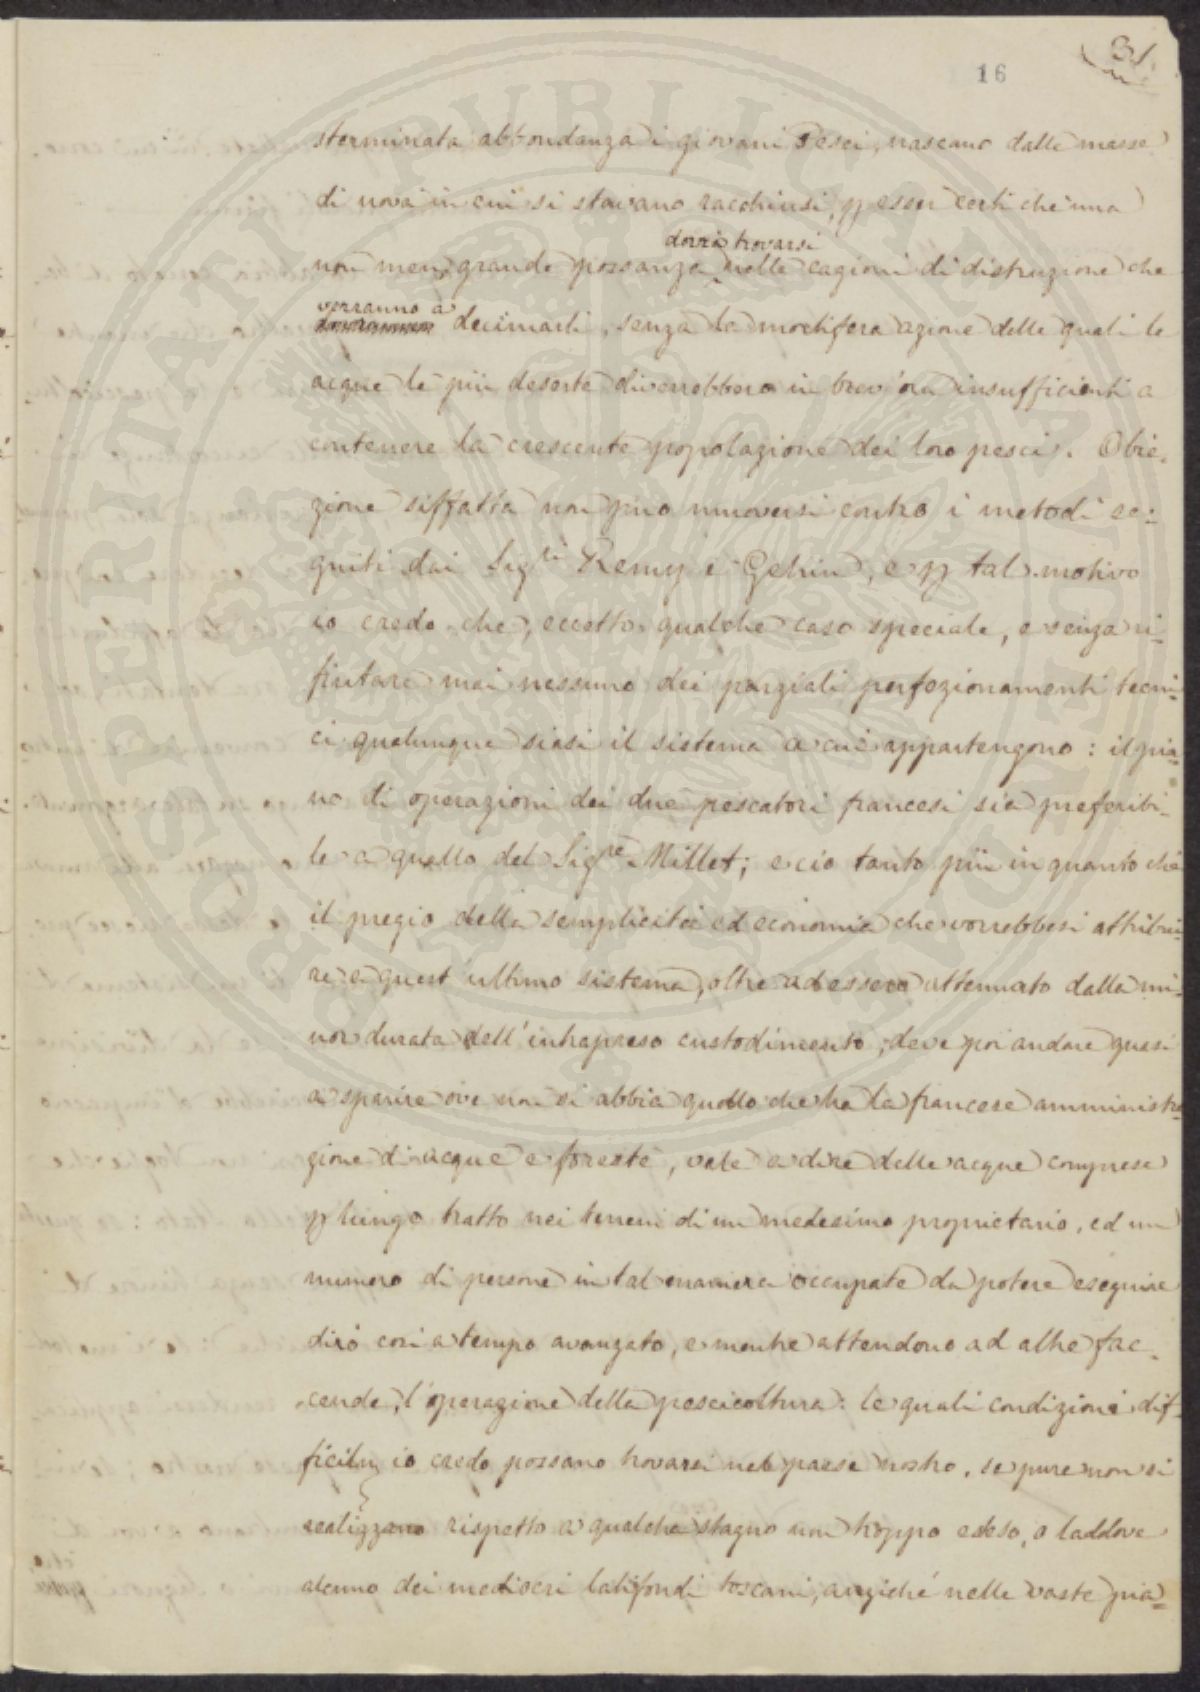 31.
16
sterminata abbondanza i giovani Pesci, nascano dalle masse
di uova in cui si stavano racchiusi, p esser certi che una
dovrà trovarsi
non men grande possanza nelle cagioni di distruzione che
verranno a
decimarli, senza la mortifera azione delle quali le
acque le più deserte diverrebbero in brev'ora insufficienti a
contenere la crescente popolazione dei loro pesci. Obie-
zione siffatta non può muoversi contro i metodi se-
guiti dai Sig.ri Remy e Gehin, e p tal motivo
io credo che, eccetto qualche caso speciale, e senza ri-
fiutare mai nessuno dei parziali perfezionamenti tecni-
ci qualunque siasi il sistema a cui appartengono: il pia-
no di operazioni dei due pescatori francesi sia preferibi-
le a quello del Sig.re Millet; e ciò tanto più in quanto che
il pregio della semplicità ed economia che vorrebbesi attribui-
re a quest'ultimo sistema, oltre ad essere attenuato dalla mi-
nor durata dell'intrapreso custodimento, deve poi andare quasi
a sparire ove non si abbia quello che ha la francese amministra-
zione di acque e foreste, vale a dire delle acque comprese
p lungo tratto nei terreni di un medesimo proprietario, ed un
numero di persone in tal maniera occupate da potere eseguire
dirò così a tempo avanzato, e mentre attendono ad altre fac-
cende, l'operazione della pescicoltura: le quali condizioni dif-
ficilm io credo possano trovarsi nel paese nostro, se pure non si
realizzano rispetto a qualche stagno non troppo esteso, o laddove
alcuno dei mediocri latifondi toscani, anziché nelle vaste pia-
PROSPERITATI PUBLICAE AUGENDAE